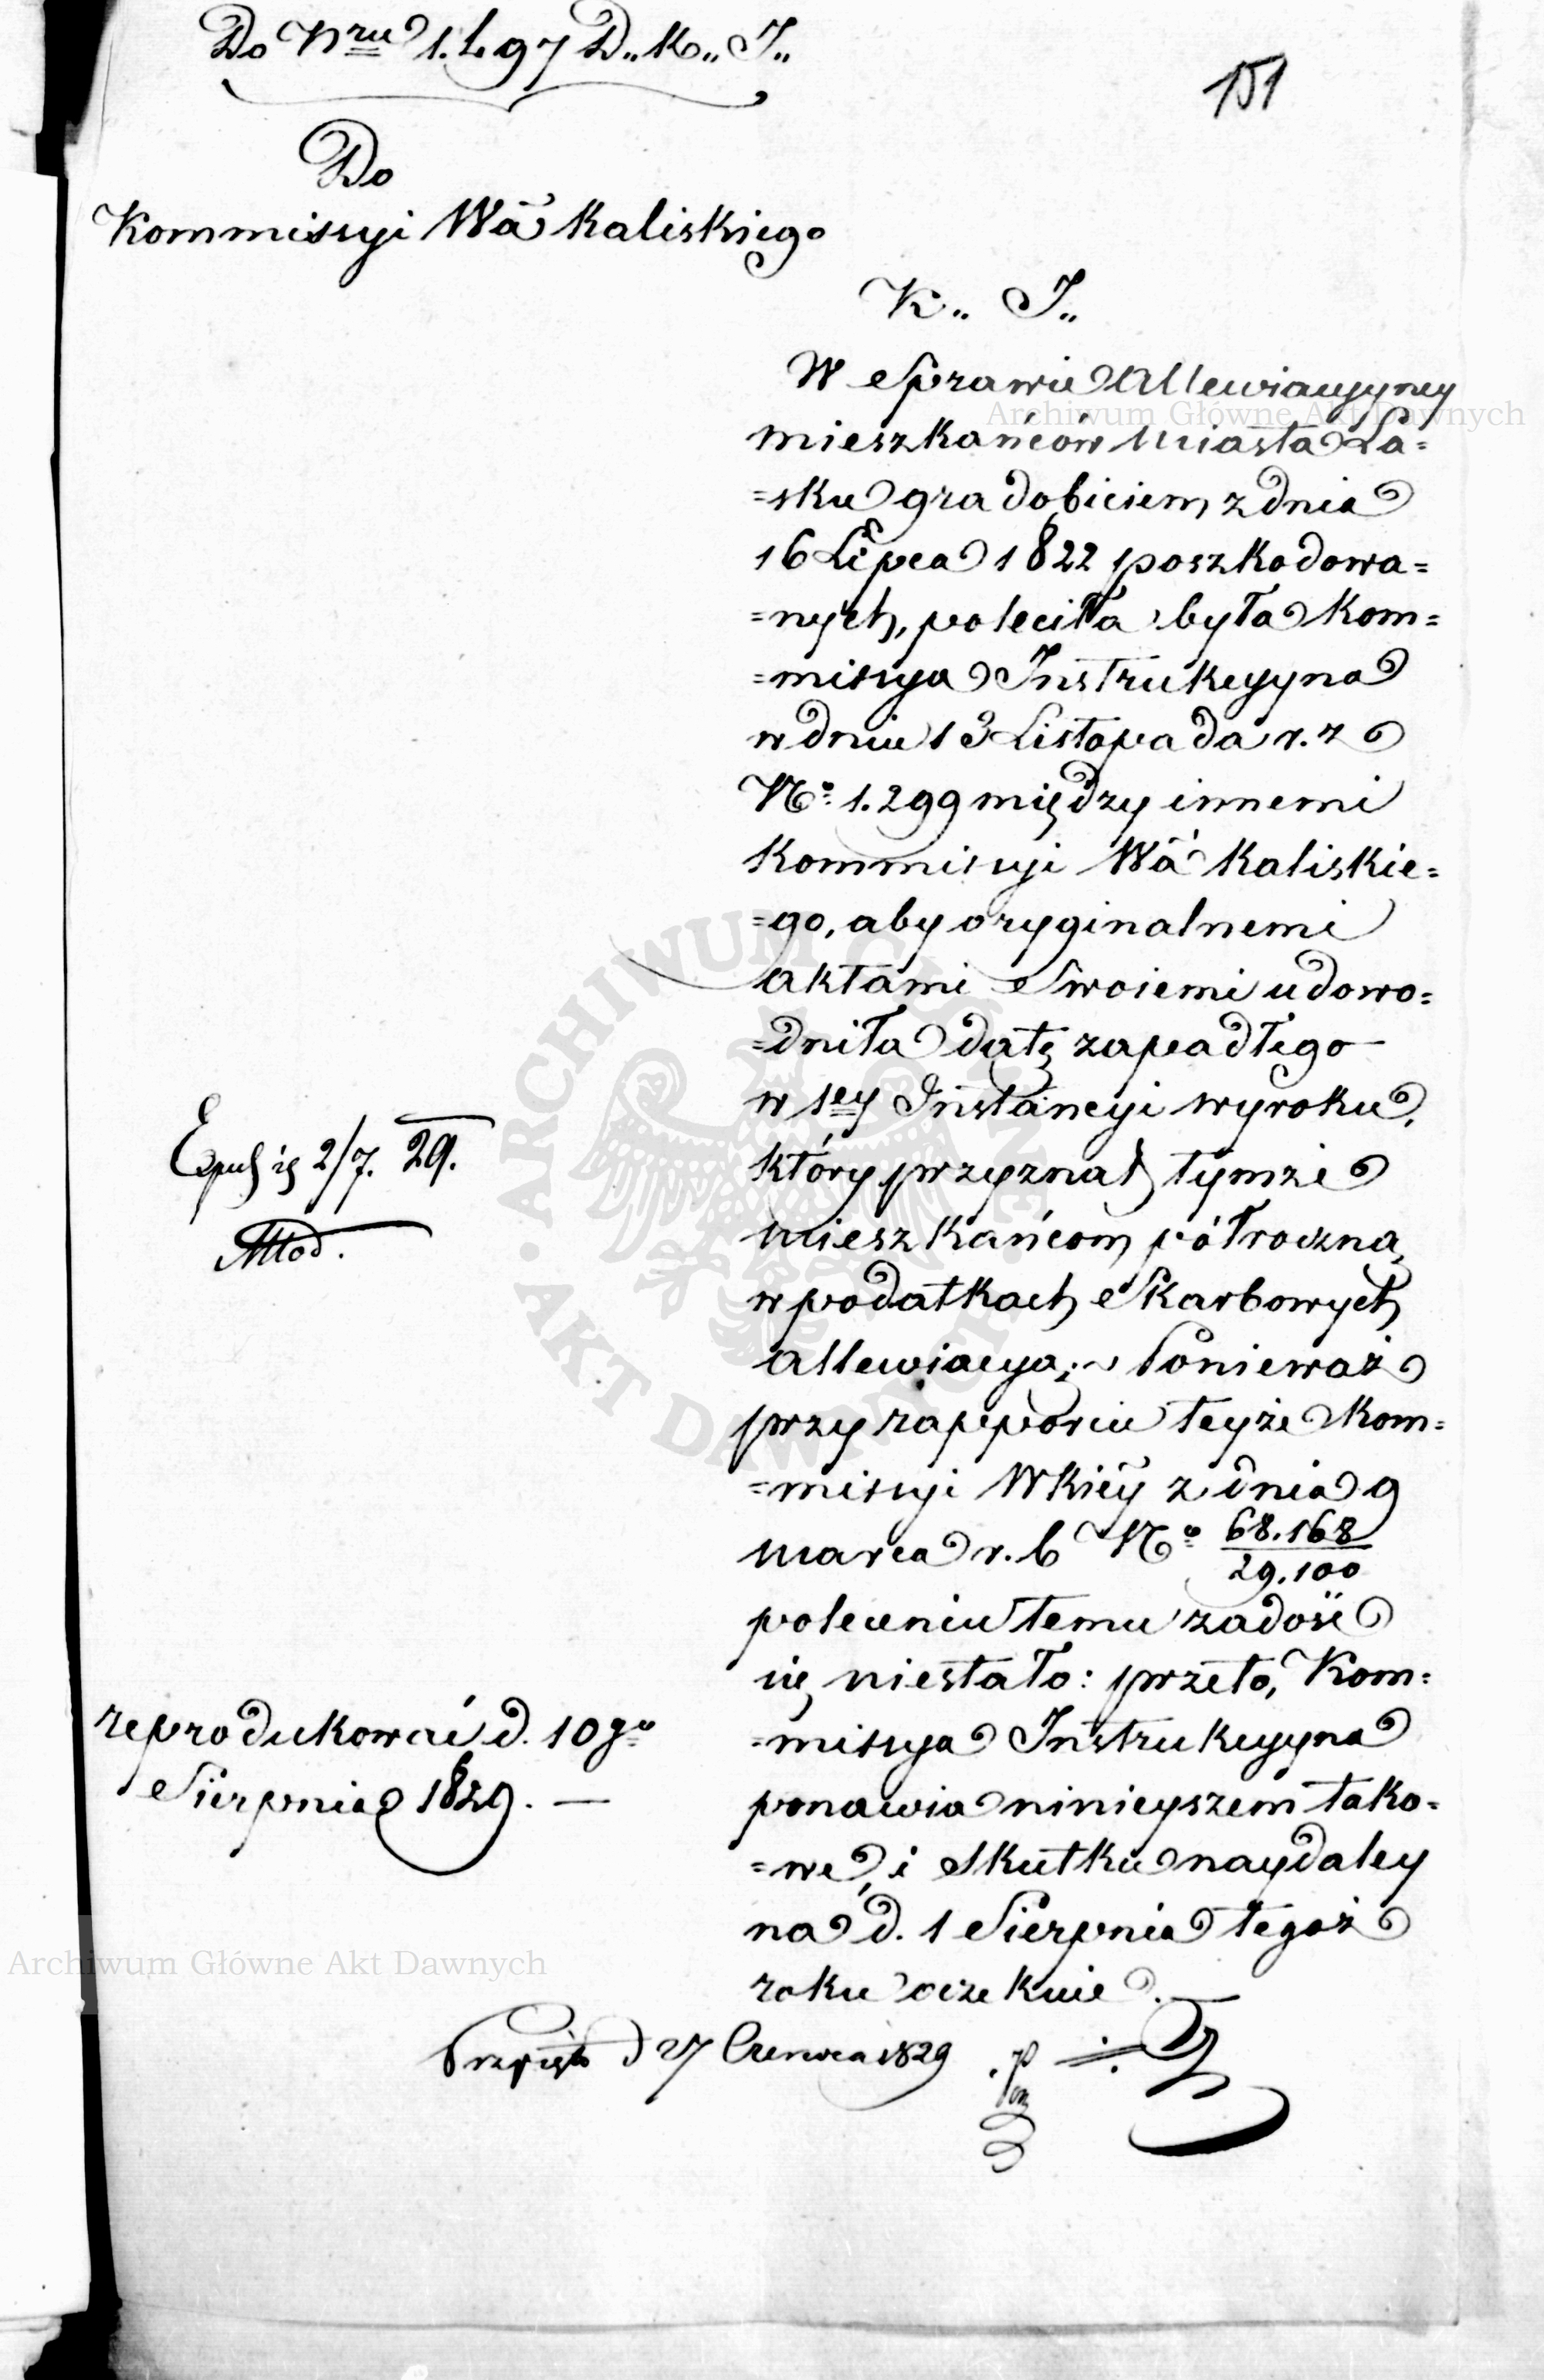 Do Nru 1.497 D.. K.. I..
151
Do
Kommissyi Wa Kaliskiego
K.. I..
W Sprawie Allewiacyyney
mieszkańców Miasta La=
=sku gradobiciem z dnia
16 Lipca 1822 poszkodowa=
=nych, poleciła była Kom=
=missya Instrukcyyna
w dniu 13 Listopada r. z
No 1.299 między innemi
Kommissyi Wa Kaliskie=
=go, aby oryginalnemi
aktami Swoiemi udowo=
=dniła datę zapadłego
w 1ey Instancyi wyroku,
który przyznał tymże
Mieszkańcom półroczną
w podatkach Skarbowych
allewiacyą; Ponieważ
przy rapporcie teyże Kom=
=missyi Wkiey z dnia 9
Marca r. b No 68.168/29.100
poleceniu temu zadość
się niestało: przeto, Kom=
=missya Instrukcyyna
ponawia ninieyszem tako=
=we, i Skutku naydaley
na d. 1 Sierpnia tegoż
roku oczekuie.
2/7. 29.
reprodukować d. 10go
Sierpnia 1829. —
Przyięto d 27 Czerwca 1829
Archiwum Główne Akt Dawnych
Archiwum Główne Akt Dawnych
ARCHIWUM GŁÓWNE AKT DAWNYCH